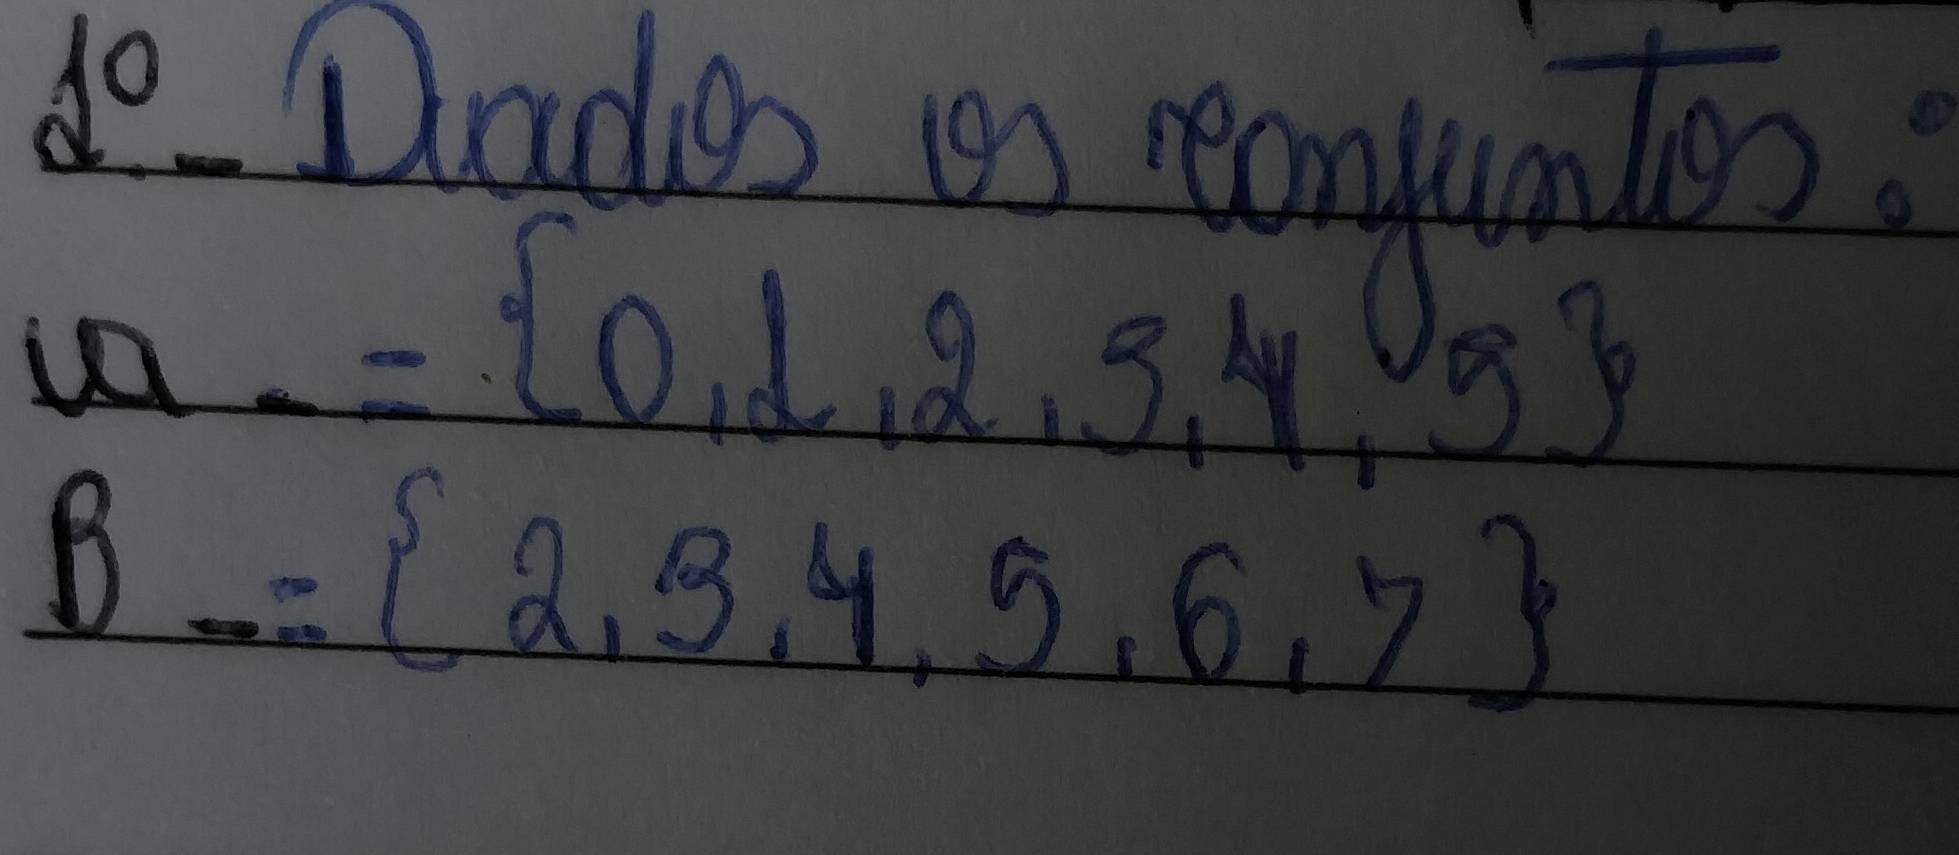 1º - Dados os conjuntos:
a - = {0, 1, 2, 3, 4, 5}
B - = { 2, 3, 4, 5, 6, 7 }